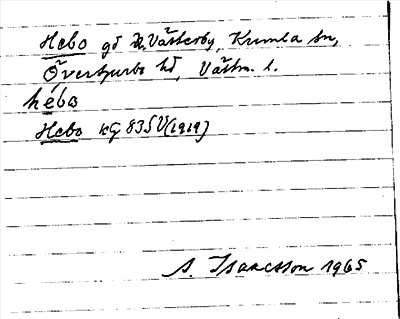 Hebo gd Västerby, Kumla sn,
Övertjurbo hd, Västm. l.
hebo
Hebo kG 835 V (1919)
A. Isaacsson 1965